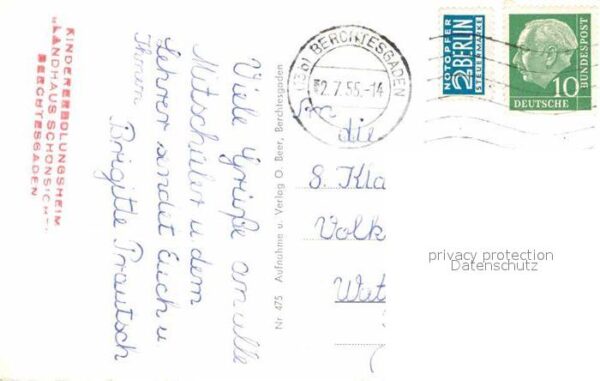 KINDERERHOLUNGSHEIM
„LANDHAUS SCHÖNSICHT"
BERCHTESGADEN
Viele Grüße an alle
Mitschüler u. dem
Lehrer sendet Euch u.
Ihnen
Brigitte Prautsch
Nr 475 Aufnahme u. Verlag O. Beer, Berchtesgaden
(13b) BERCHTESGADEN
2.7.55.-14
NOTOPFER
2 BERLIN
STEUERMARKE
DEUTSCHE
BUNDESPOST
10
An
die
8. Kla
Volk
Wat
privacy protection
Datenschutz